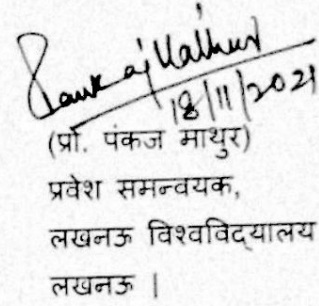 Pankaj Mathur
18/11/2021
(प्रो. पंकज माथुर)
प्रवेश समन्वयक,
लखनऊ विश्वविद्यालय
लखनऊ |